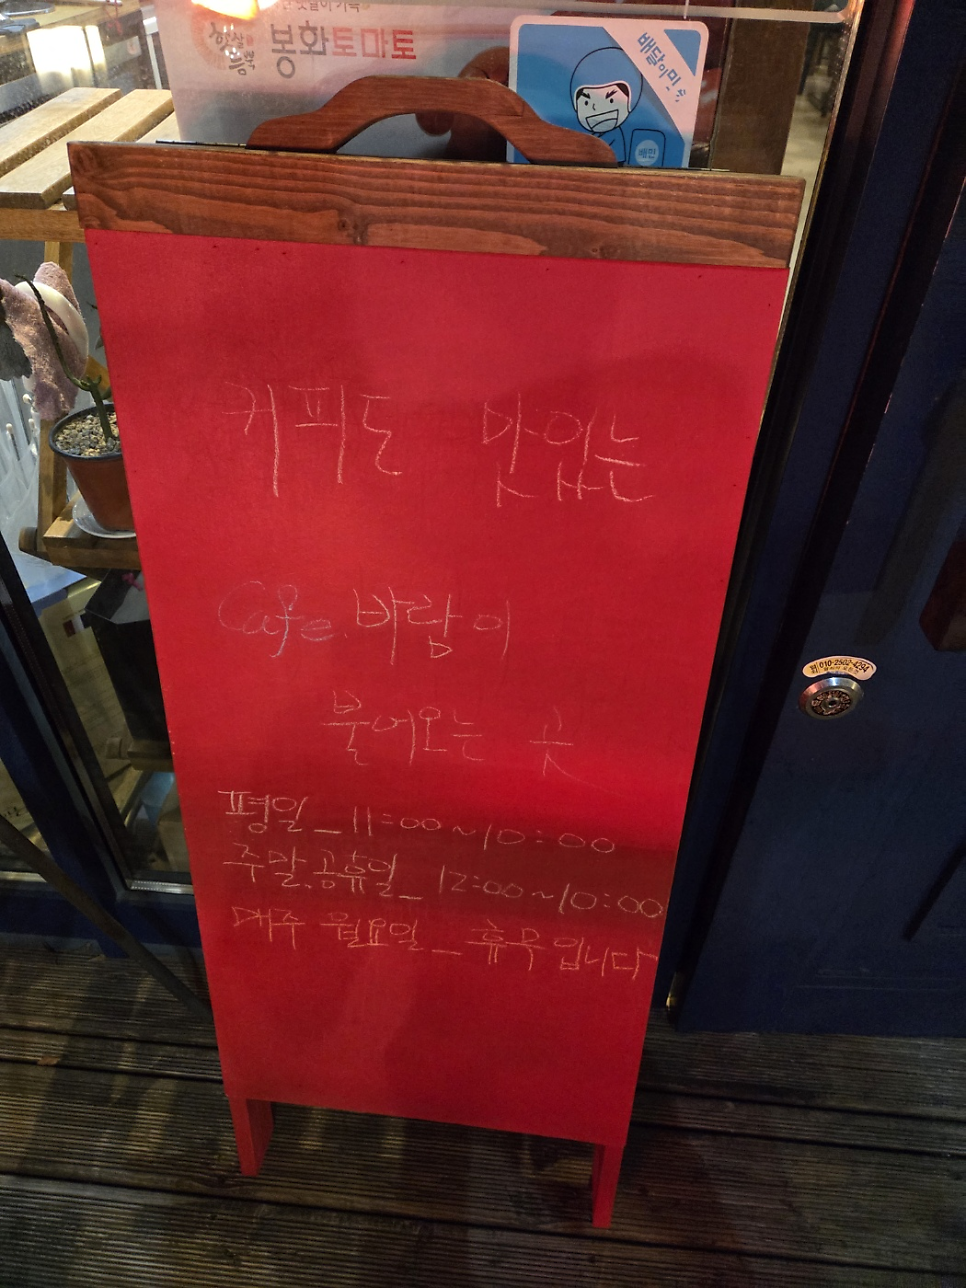 햇살이름뿍
봉화토마토
배달의민족
배민
커피도 맛있는
Cafe. 바람이
불어오는 곳
평일_11:00~10:00
주말.공휴일_12:00~10:00
매주 월요일_휴무입니다
010-2502-4294